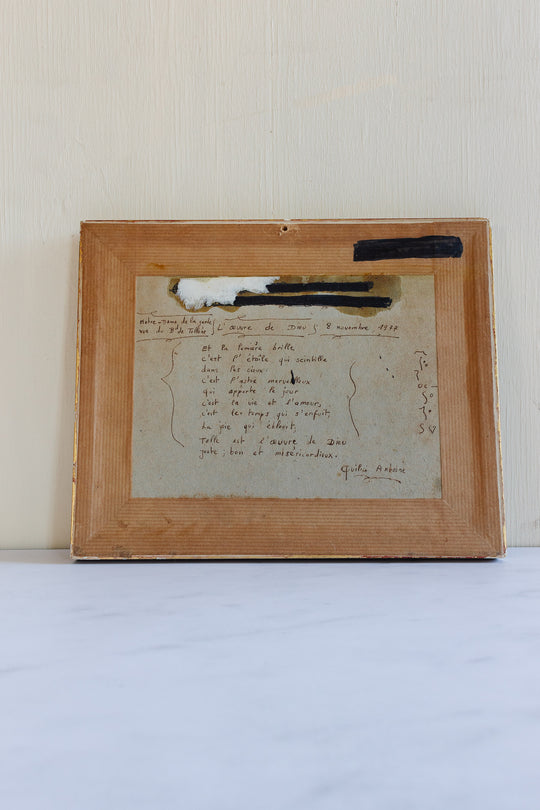 Notre-Dame de la garde
vue du Bd de Tellène
L'œuvre de Dieu 8 novembre 1977
Et la lumière brille
c'est l'étoile qui scintille
dans les cieux
c'est l'astre merveilleux
qui apporte le jour
c'est la vie et l'amour,
c'est le temps qui s'enfuit,
La joie qui éblouit,
Telle est l'œuvre de Dieu
juste, bon et miséricordieux.